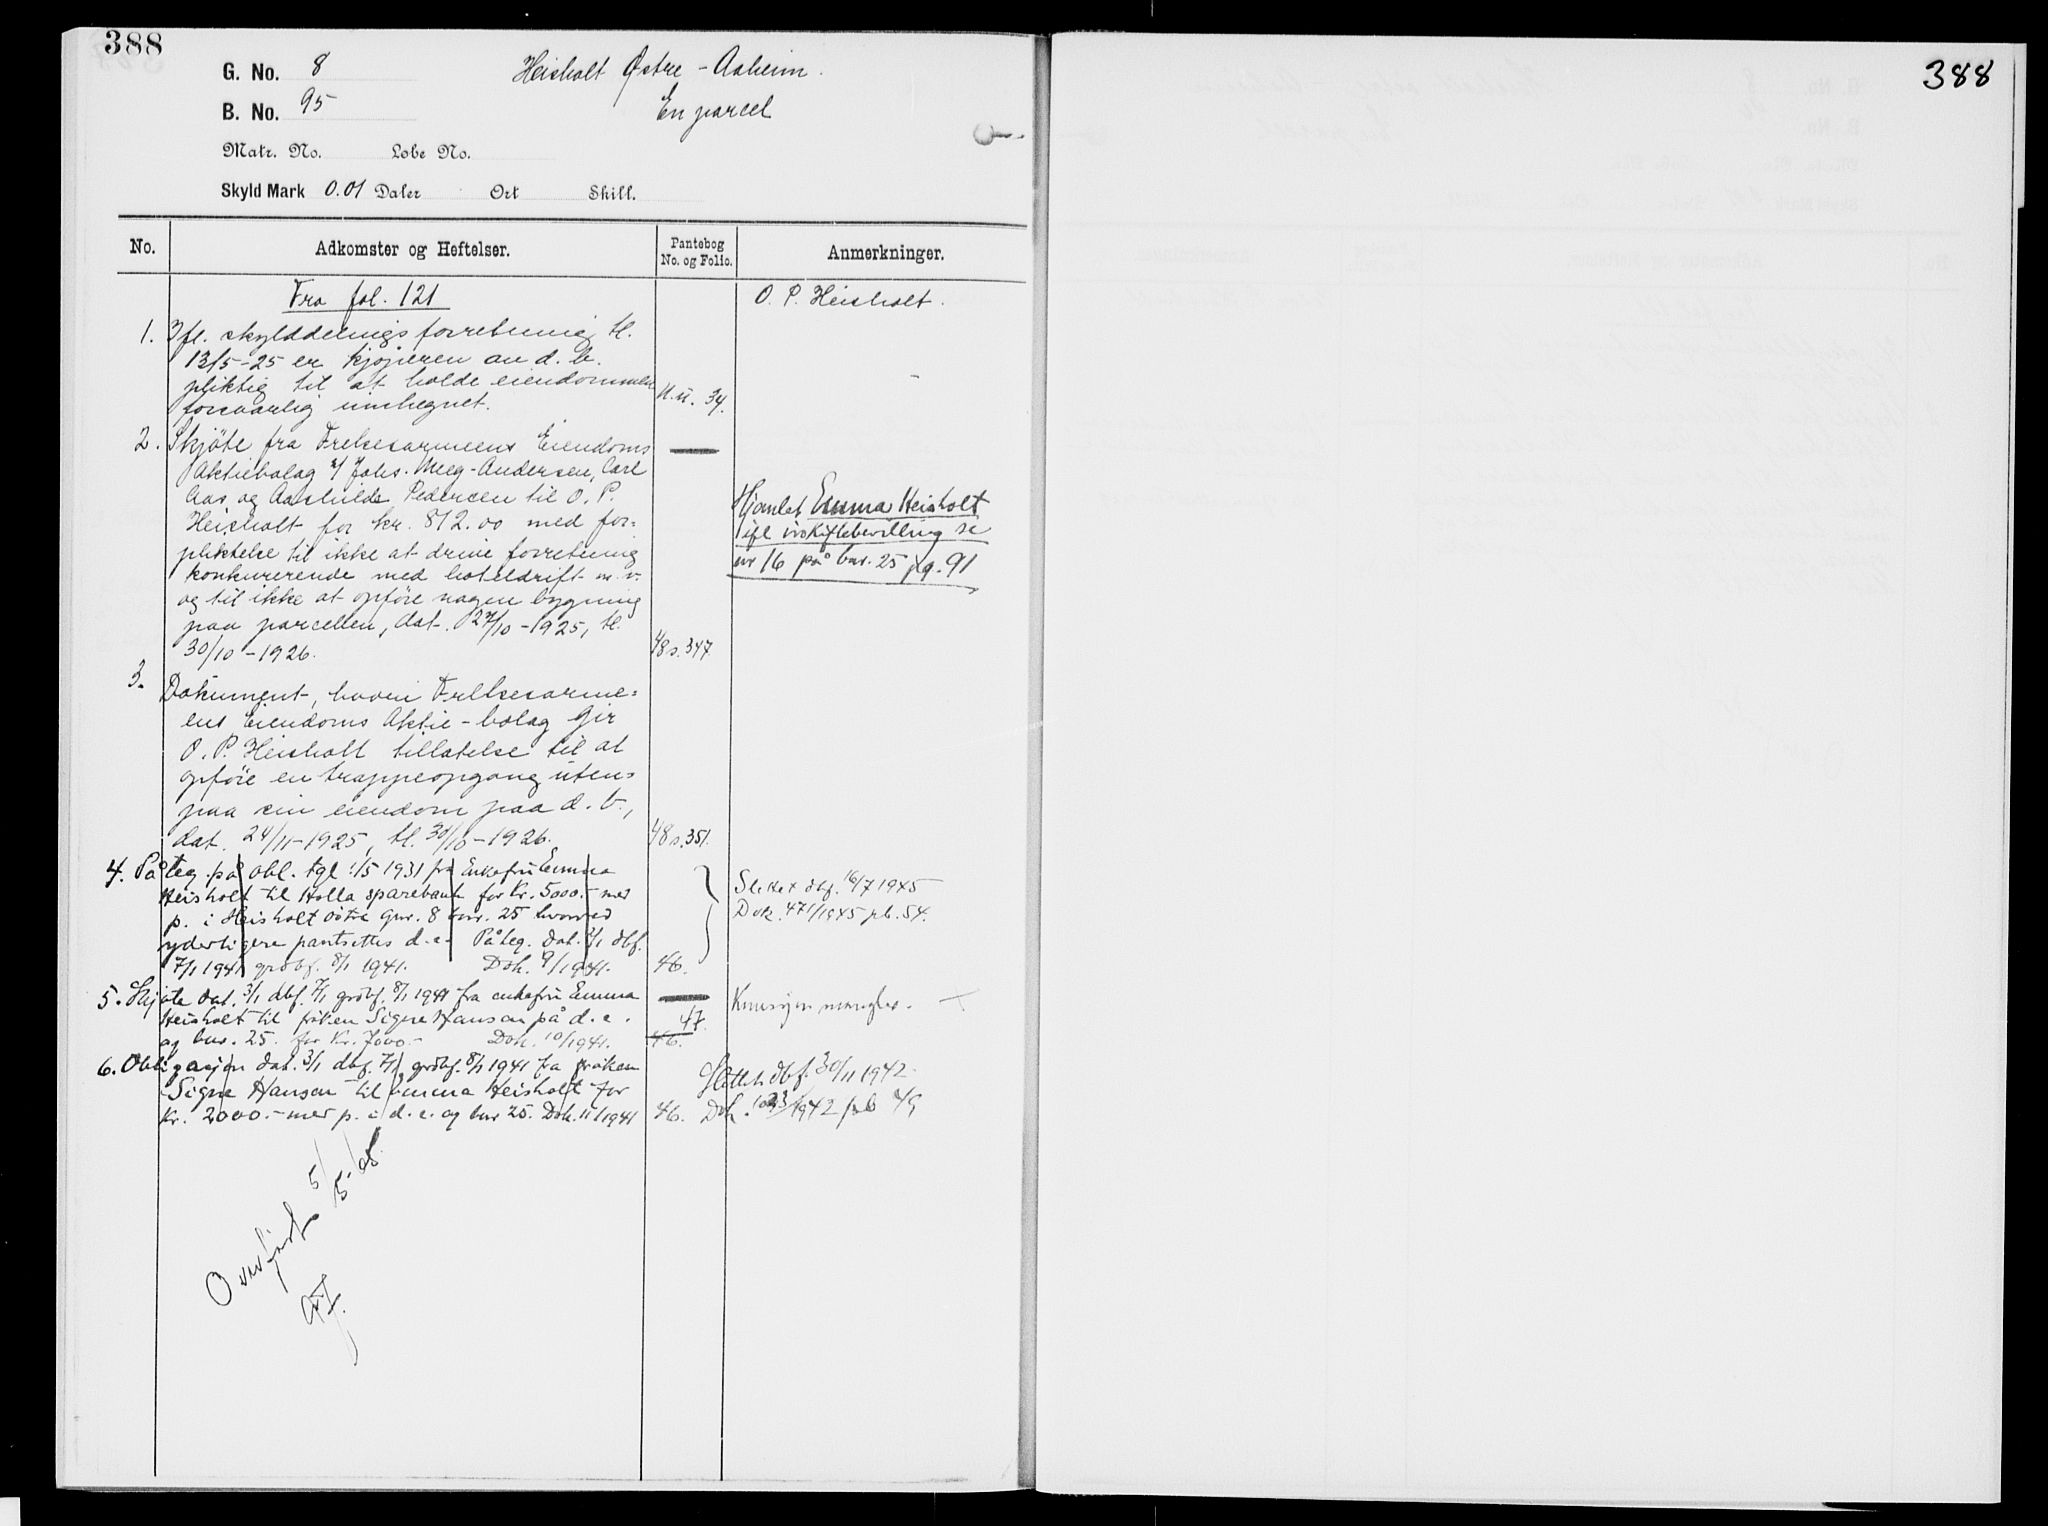 388
G. No. 8
Heisholt Østre - Aaheim.
B. No. 95
En parcel
Matr. No. Løbe No.
Skyld Mark 0.01 Daler Ort Skill.
No.
Adkomster og Heftelser.
Pantebog
No. og Folio.
Anmerkninger.
Fra fol. 121
O. P. Heisholt.
1. Ifl. skylddelingsforretning tl.
13/5-25 er kjøperen av d. b.
pliktig til at holde eiendommen
forsvarlig innhegnet.
34.
2. Skjøte fra Frelsesarmeens Eiendoms
Aktiebolag v/ Johs. Meeg-Andersen, Carl
Aas og Aashilde Pedersen til O. P.
Heisholt for kr. 812.00 med for=
pliktelse til ikke at drive forretning
konkurerende med hoteldrift m. v.
og til ikke at opføre nogen bygning
paa parcellen, dat. 27/10-1925, tl.
30/10-1926.
48 s. 347
Hjemlet Emma Heisholt
ifl. uskiftebevilling se
nr 16 på bnr. 25 pg. 91
3. Dokument, hvori Frelsesarme=
ens Eiendoms Aktie-bolag gir
O. P. Heisholt tillatelse til at
opføre en trappeopgang uten=
paa sin eiendom paa d. b.,
dat. 24/11-1925, tl. 30/10-1926.
48 s. 351.
4. Påteg. på obl. tgl 1/5 1931 fra Enkefru Emma
Heisholt til Holla sparebank for Kr. 5000.- mer
p. i Heisholt østre gnr. 8 bnr. 25 hvorved
yderligere pantsettes d. e. Påteg. dat. 3/1 dbf.
7/1 1941 grdbf. 8/1 1941. Dok. 9/1941.
46.
Slettet dbf. 16/7 1945
Dok. 471/1945 pb. 54.
5. Skjøte dat. 3/1 dbf. 7/1 grdbf. 8/1 1941 fra enkefru Emma
Heisholt til frøken Signe Hansen på d. e.
og bnr. 25. for Kr. 7000.- Dok. 10/1941.
47.
46.
Konsesjon mangler.
6. Obligasjon dat. 3/1 dbf. 7/1, grdbf. 8/1 1941 fra frøken
Signe Hansen til Emma Heisholt for
Kr. 2000.- mer p. i d. e. og bnr 25. Dok. 11/1941
46.
Slettet dbf. 30/11 1942.
Dok. 1023/1942 pb 49
Overført 5/5-
388